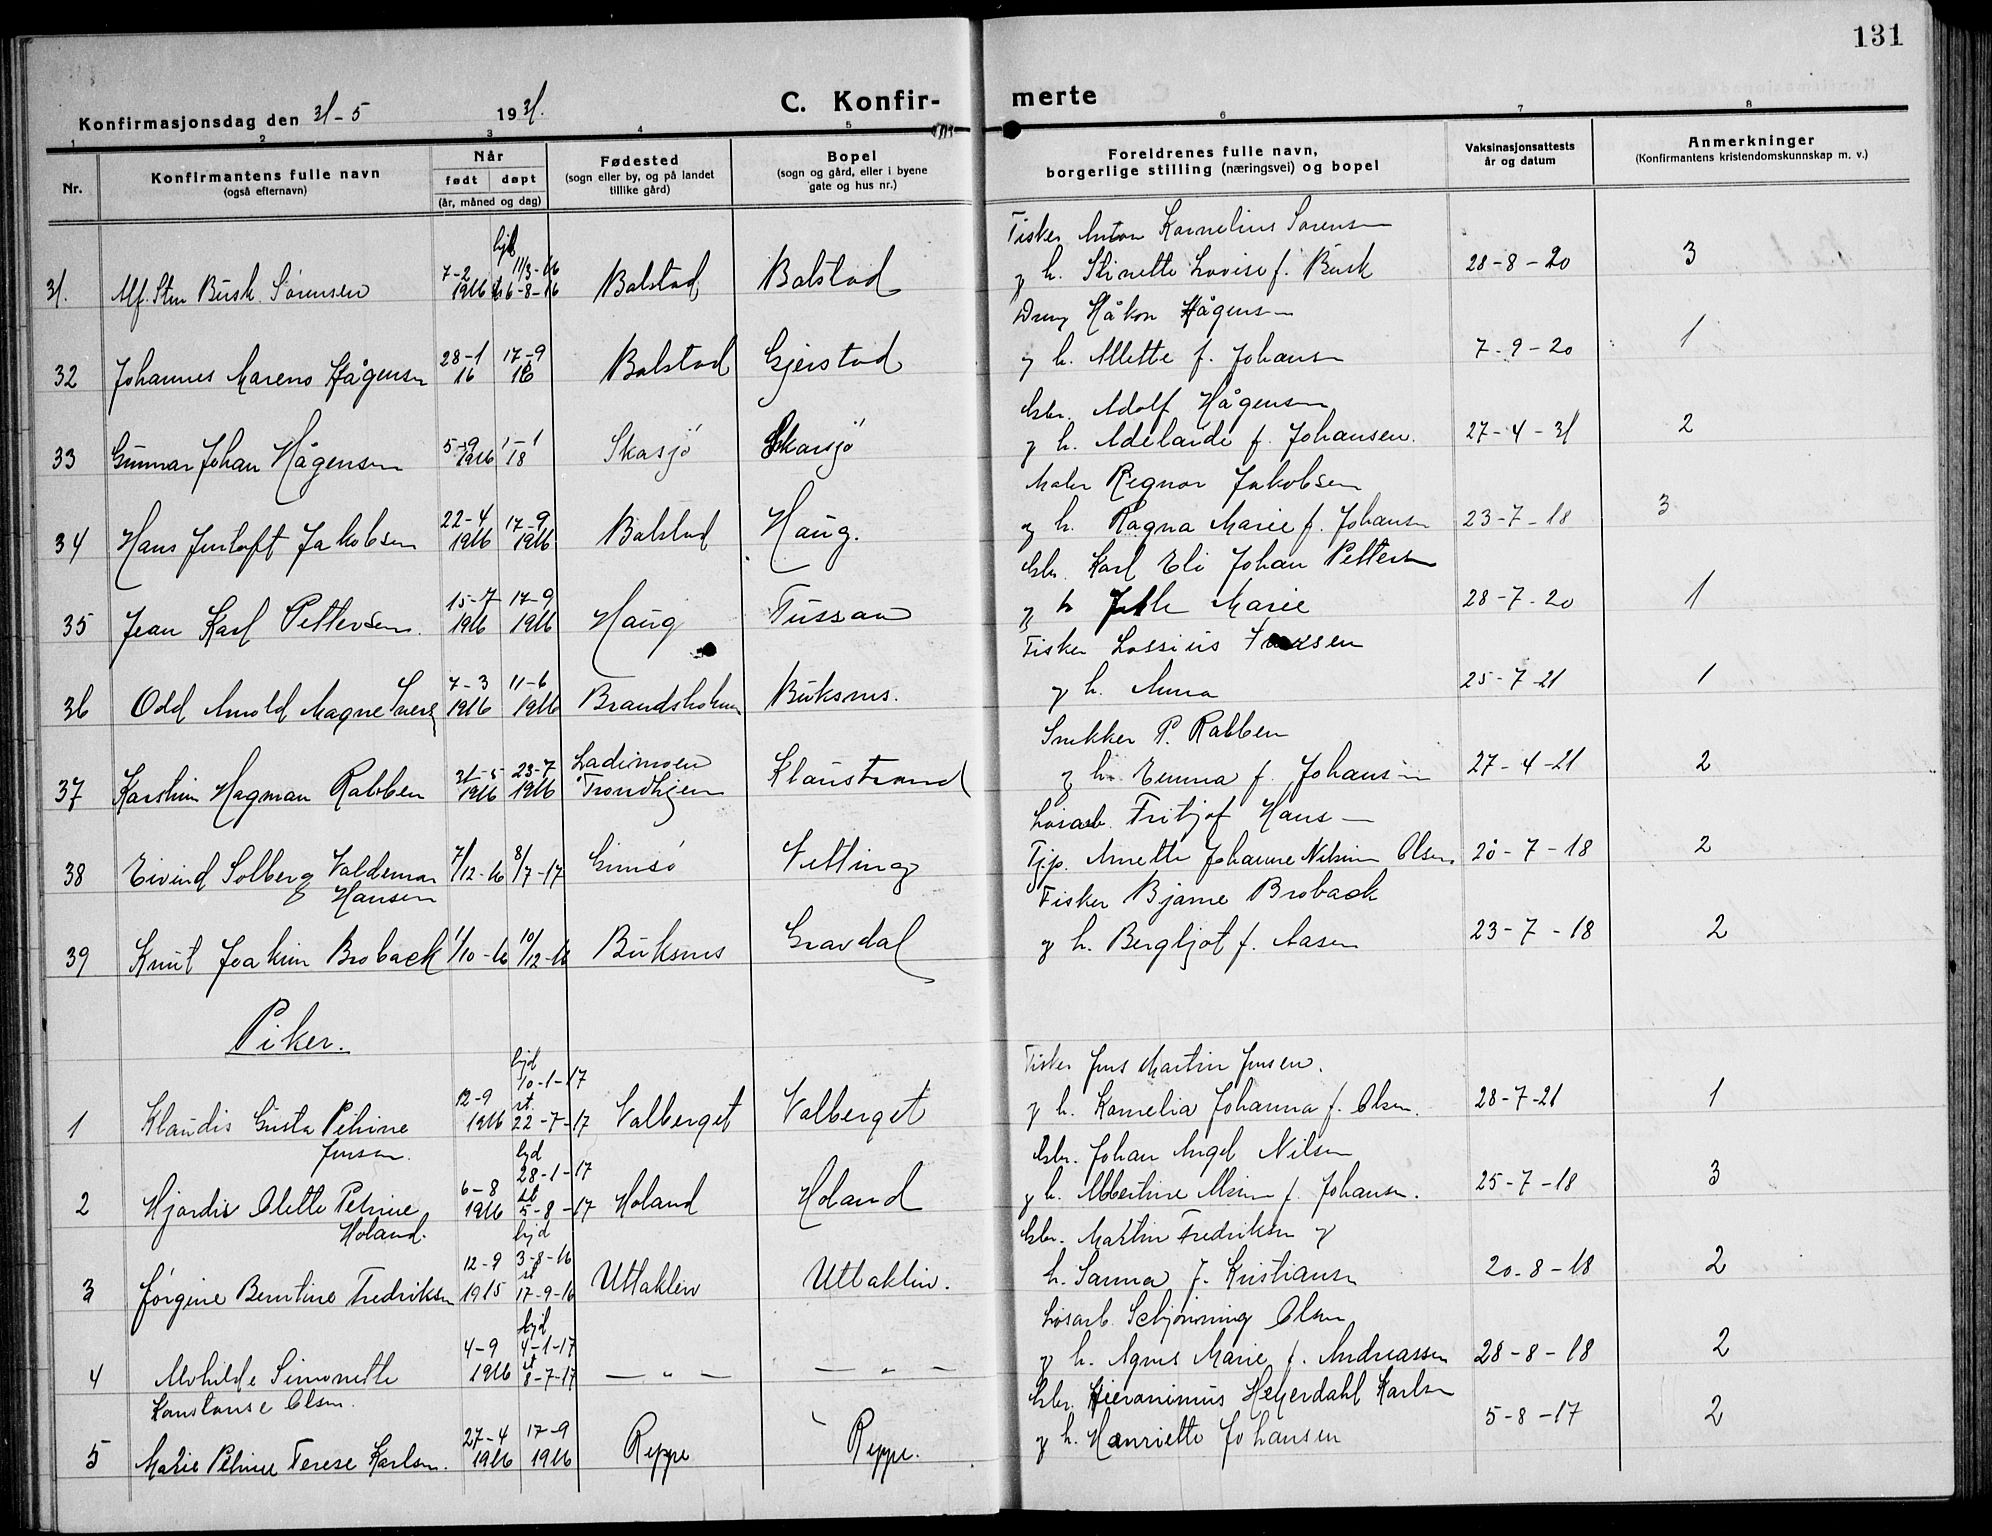 131
Konfirmasjonsdag den 31-5 1931.
C. Konfir-
merte
1 2 3 4 5 6 7 8
Nr.
Konfirmantens fulle navn
(også efternavn)
Når
født døpt
(år, måned og dag)
Fødested
(sogn eller by, og på landet
tillike gård)
Bopel
(sogn og gård, eller i byene
gate og hus nr.)
Foreldrenes fulle navn,
borgerlige stilling (næringsvei) og bopel
Vaksinasjonsattests
år og datum
Anmerkninger
(Konfirmantens kristendomskunnskap m. v.)
hjd
7-2 11/3-16 Fisker Anton Kornelius Sørensen
31. Alf. Sten Busk Sørensen 1916 6-8-16 Balstad Balstad og h. Stinette Lovise f. Busk 28-8-20 3
28-1 17-9 Håkon Hågensen
32 Johannes Mareno Hågensen 16 16 Balstad Gjerstad og h. Alette f. Johansen 7-9-20 1
5-9 1-1 Gbr. Adolf Hågensen
33 Gunnar Johan Hågensen 1916 18 Skasjø Skarsjø og h. Adelaide f. Johansen. 27-4-31 2
22-4 17-9 Maler Regnor Jakobsen
34 Hans Jentoft Jakobsen 1916 1916 Balstad Haug. og h. Ragna Marie f. Johansen 23-7-18 3
15-7 17-9 Gbr. Karl Eli Johan Pettersen
35 Jean Karl Pettersen. 1916 1916 Haug Tussan og h Marie 28-7-20 1
7-3 11-6 Fisker Lossius
36 Odd Arnold Magne 1916 1916 Brandsholmen Buksnes. og h. Anna 25-7-21 1
31-5 23-7 Ladimoen Snekker P. Rabben
37 Karstein Hagman Rabben 1916 1916 Trondhjem Klaustrand og h. Emma f. Johansen 27-4-21 2
7/ 8/ Løsarb. Fritjof Hans—
38 Eivind Solberg Valdemar 12-16 7-17 Gimsø Vetting Tjp. Anette Johanne Nilsine Olsen 20-7-18 2
Hansen
1/ 10/ Fisker Bjarne Broback
39 Knut Joakim Broback 10-16 12-16 Buksnes Gravdal og h. Bergljot f. Aasen 23-7-18 2
Piker.
hjd
10-1-17 Fisker Jens Martin Jensen.
12-9 st.
1 Klaudis Gusta Petrine 1916 22-7-17 Valberget Valberget og h. Kornelia Johanna f. Olsen. 28-7-21 1
Jensen.
hjd
28-1-17 Gbr. Johan Angel Nilsen
6-8 st
2 Hjørdis Olette Petrine 1916 5-8-17 Holand Holand og h. Albertine f. Johansen. 25-7-18 3
Holand.
hjd
12-9 3-8-16 Gbr. Martin Fredriksen og
st
3 Jørgine Berntine Fredriksen 1915 17-9-16 Uttakleiv Uttakleiv. h. Sanna f. Kristiansen 20-8-18 2
hjd
4-9 4-1-17 Løsarb. Schjønning Olsen
st
4 Alvhilde Simonette 1916 8-7-17 — " — — " — og h. Agnes Marie f. Andreassen 28-8-18 2
Konstanse Olsen.
27-4 17-9 Gbr. Hieronimus Heyerdahl Karlsen
5 Marie Petrine Terese Karlsen. 1916 1916 Reppe Reppe. og h. Henriette Johansen 5-8-17 2